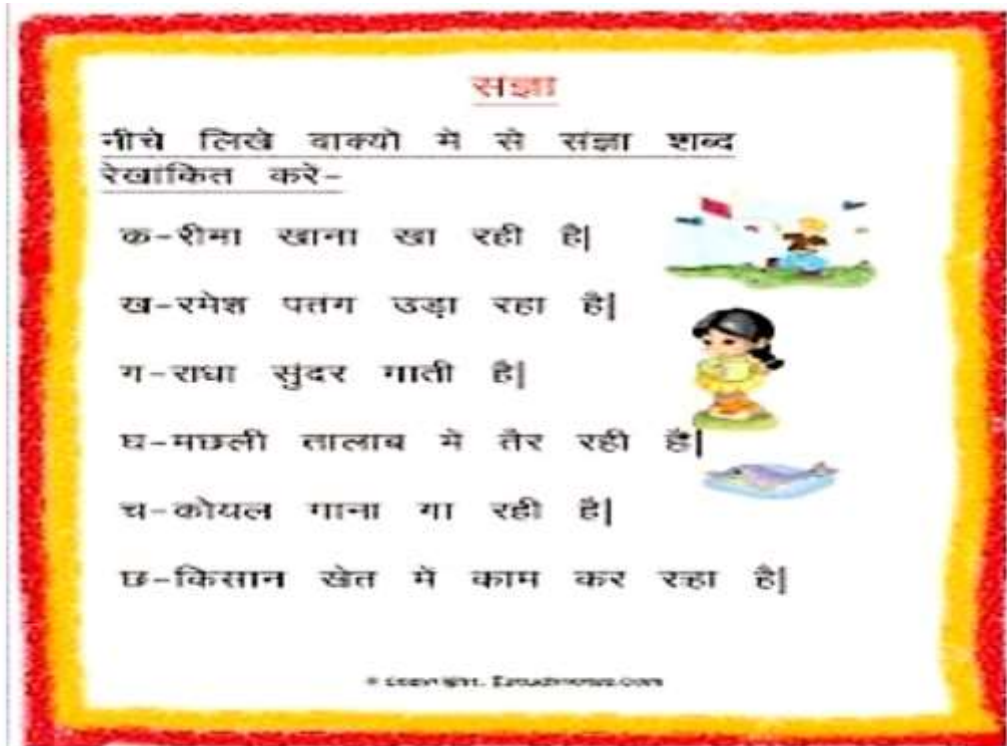 संज्ञा
नीचे लिखे वाक्यो में से संज्ञा शब्द
रेखांकित करे-
क-रीमा खाना खा रही है|
ख-रमेश पतंग उड़ा रहा है|
ग-राधा सुंदर गाती है|
घ-मछली तालाब मे तैर रही है|
च-कोयल गाना गा रही है|
छ-किसान खेत में काम कर रहा है|
© Copyright.